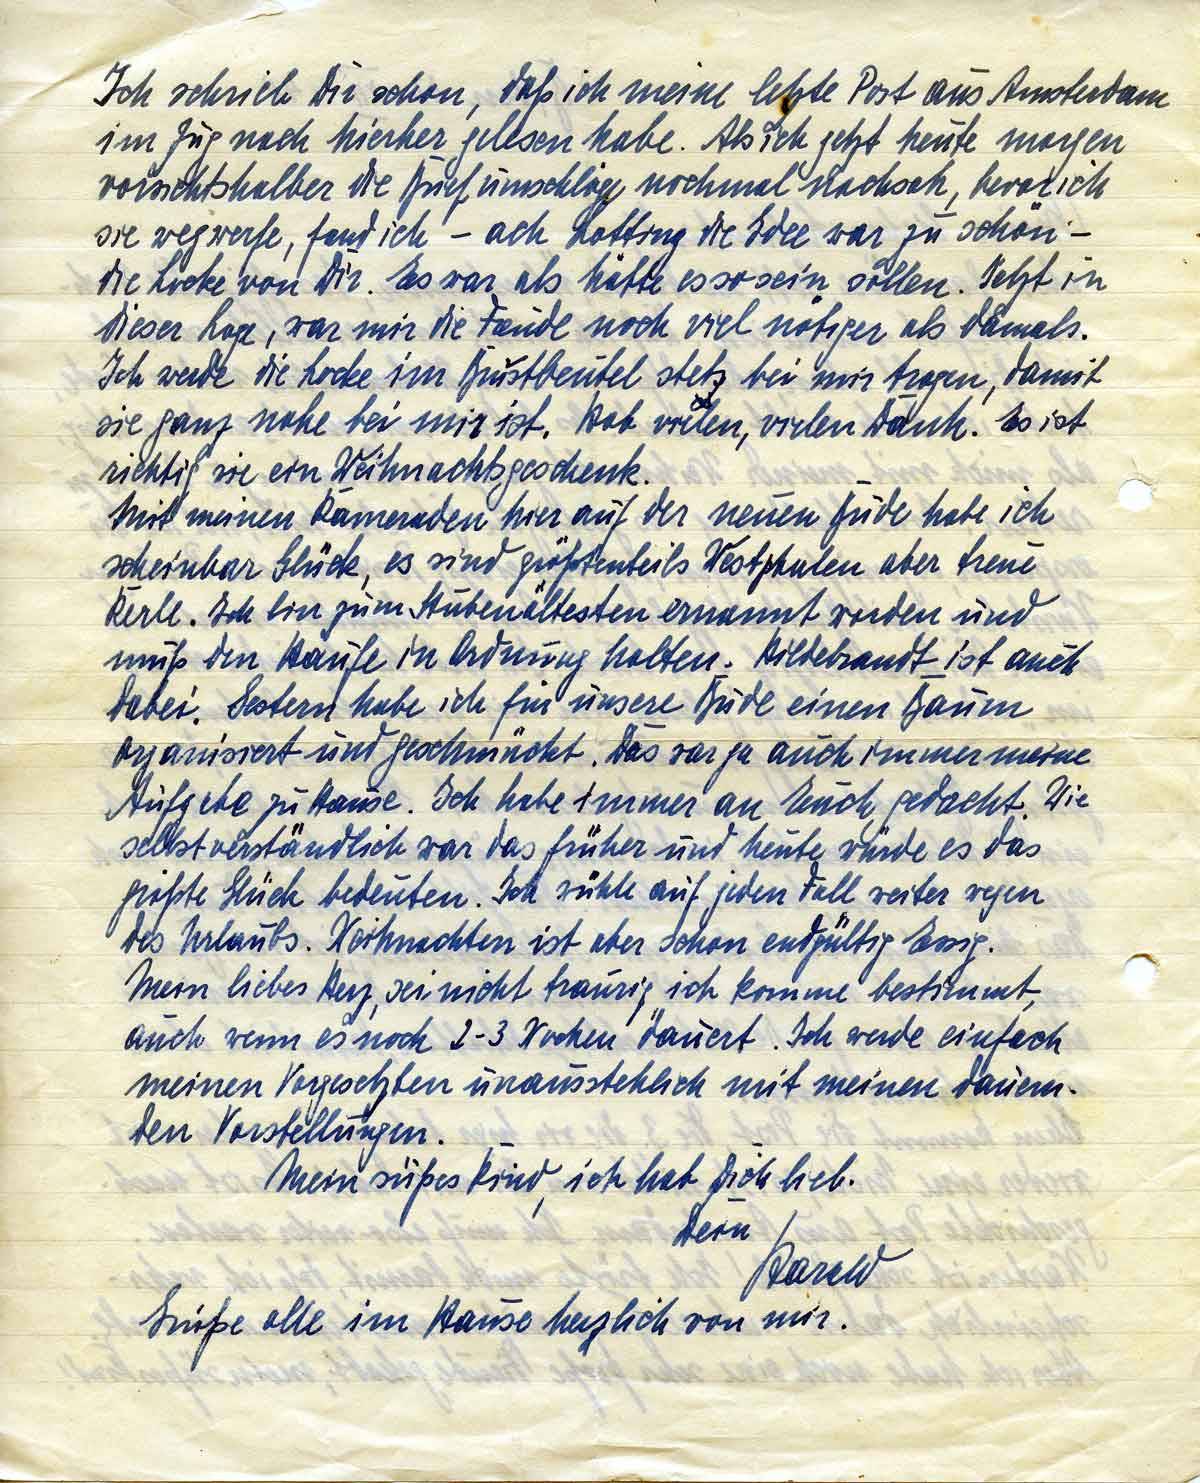 Ich schrieb Dir schon, daß ich meine letzte Post aus Amsterdam
im Zug nach hierher gelesen habe. Als ich jetzt heute morgen
vorsichtshalber die Briefumschläge nochmal nachsah, bevor ich
sie wegwerfe, fand ich – ach Lotting die Idee war zu schön –
die Locke von Dir. Es war als hätte es so sein sollen. Jetzt in
dieser Lage, war mir die Freude noch viel nötiger als damals.
Ich werde die Locke im Brustbeutel stets bei mir tragen, damit
sie ganz nahe bei mir ist. Hab vielen, vielen Dank. Es ist
richtig wie ein Weihnachtsgeschenk.
Mit meinen Kameraden hier auf der neuen Bude habe ich
scheinbar Glück, es sind größtenteils Westphalen aber treue
Kerle. Ich bin zum Stubenältesten ernannt worden und
muß den Haufe in Ordnung halten. Hildebrandt ist auch
dabei. Gestern habe ich für unsere Bude einen Baum
organisiert und geschmückt. Das war ja auch immer meine
Aufgabe zu Hause. Ich habe immer an Euch gedacht. Wie
selbstverständlich war das früher und heute würde es das
größte Glück bedeuten. Ich wühle auf jeden Fall weiter wegen
des Urlaubs. Weihnachten ist aber schon endgültig Essig.
Mein liebes Herz, sei nicht traurig ich komme bestimmt,
auch wenn es noch 2-3 Wochen dauert. Ich werde einfach
meinen Vorgesetzten unausstehlich mit meinen dauern-
den Vorstellungen.
Mein süßes Kind, ich hab Dich lieb.
Dein
Harald
Grüße alle im Hause herzlich von mir.